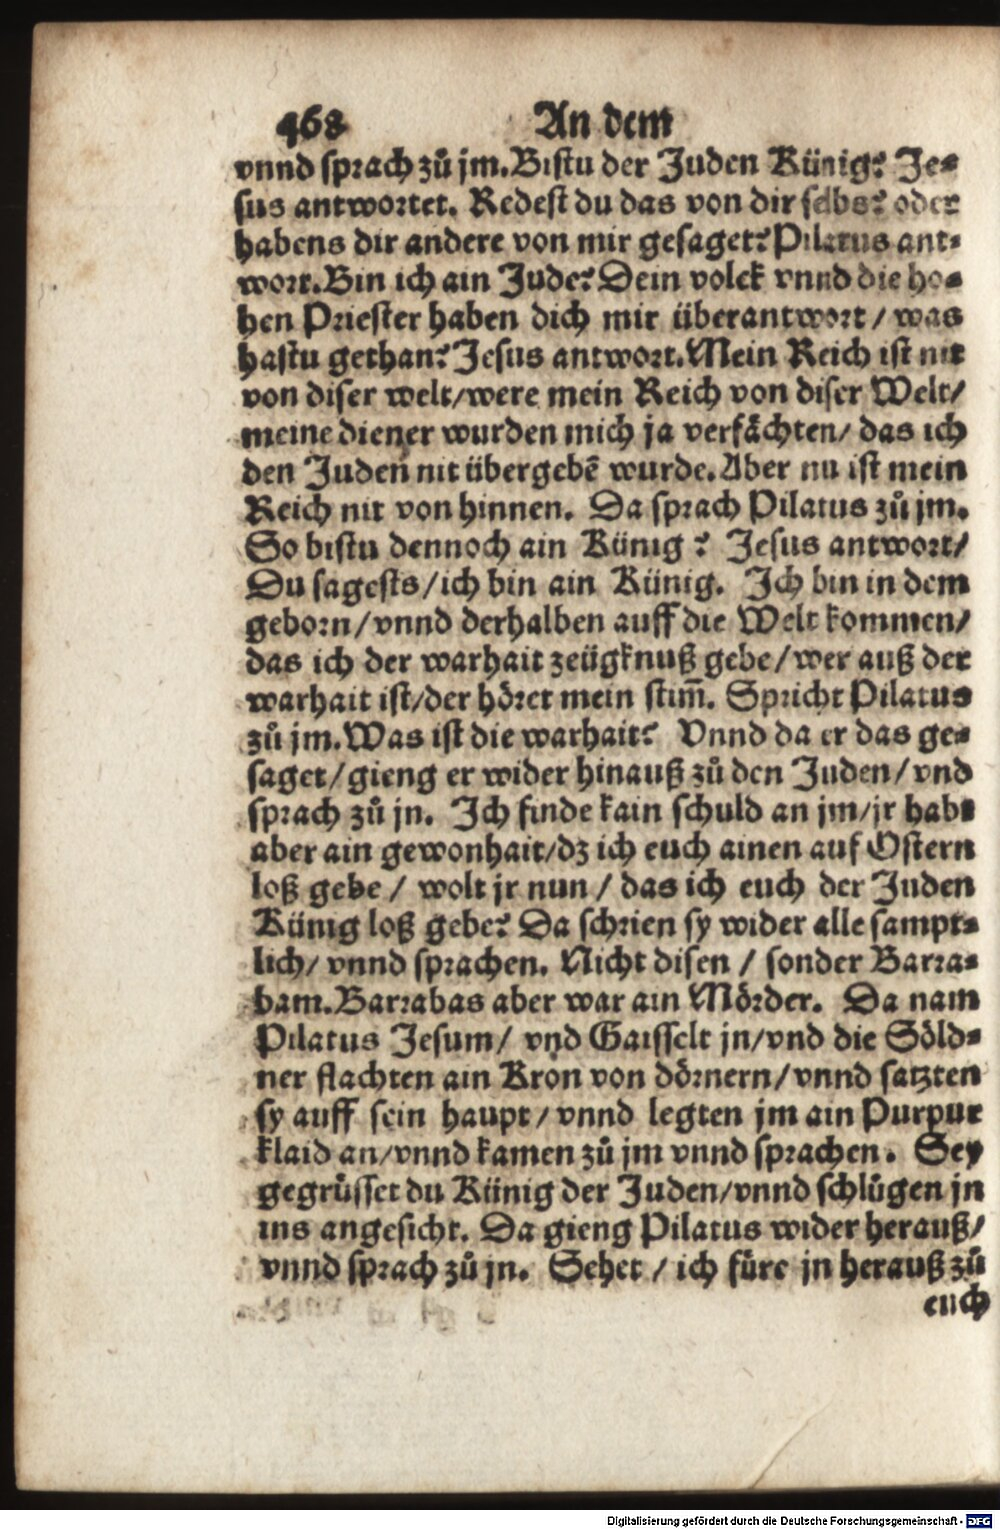 468 An dem
vnnd sprach zů jm. Bistu der Juden Künig? Je⸗
sus antwortet. Redest du das von dir selbs? oder
habens dir andere von mir gesaget? Pilatus ant⸗
wort. Bin ich ain Jude? Dein volck vnnd die ho⸗
hen Priester haben dich mir überantwort / was
hastu gethan? Jesus antwort. Mein Reich ist nit
von diser welt / were mein Reich von diser Welt /
meine diener wurden mich ja verfächten / das ich
den Juden nit übergebē wurde. Aber nu ist mein
Reich nit von hinnen. Da sprach Pilatus zů jm.
So bistu dennoch ain Künig? Jesus antwort /
Du sagests / ich bin ain Künig. Ich bin in dem
geborn / vnnd derhalben auff die Welt kommen /
das ich der warhait zeügknuß gebe / wer auß der
warhait ist / der höret mein stim̄. Spricht Pilatus
zů jm. Was ist die warhait? Vnnd da er das ge⸗
saget / gieng er wider hinauß zů den Juden / vnd
sprach zů jn. Ich finde kain schuld an jm / jr habt
aber ain gewonhait / dz ich euch ainen auf Ostern
loß gebe / wolt jr nun / das ich euch der Juden
Künig loß gebe? Da schrien sy wider alle sampt⸗
lich / vnnd sprachen. Nicht disen / sonder Barra⸗
bam. Barrabas aber war ain Mörder. Da nam
Pilatus Jesum / vnd Gaisselt jn / vnd die Söld⸗
ner flachten ain Kron von dörnern / vnnd satzten
sy auff sein haupt / vnnd legten jm ain Purpur
klaid an / vnnd kamen zů jm vnnd sprachen. Sey
gegrüsset du Künig der Juden / vnnd schlůgen jn
ins angesicht. Da gieng Pilatus wider herauß /
vnnd sprach zů jn. Sehet / ich füre jn herauß zů
euch
Digitalisierung gefördert durch die Deutsche Forschungsgemeinschaft - DFG